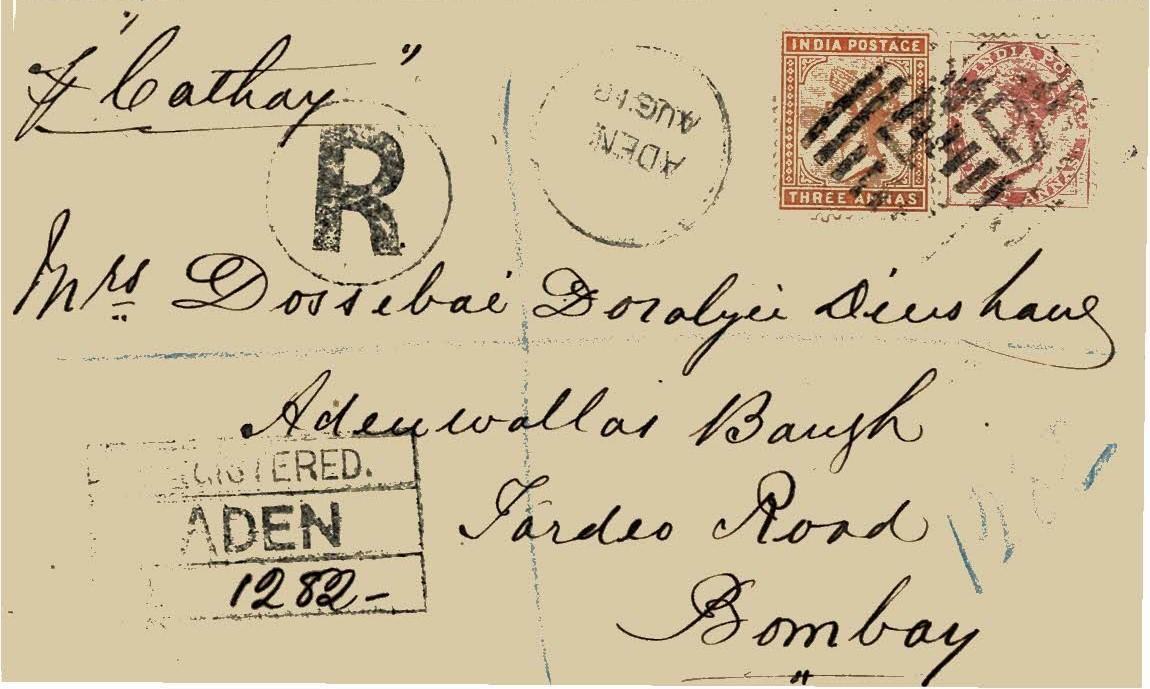 p "Cathay"
R
ADEN
AUG 18
INDIA POSTAGE
THREE ANNAS
INDIA POSTAGE
ANNAS
B
Mrs Dossebai Dorabjee Dinshaw
Adenwallas Baugh
Tardeo Road
Bombay
REGISTERED.
ADEN
1282-